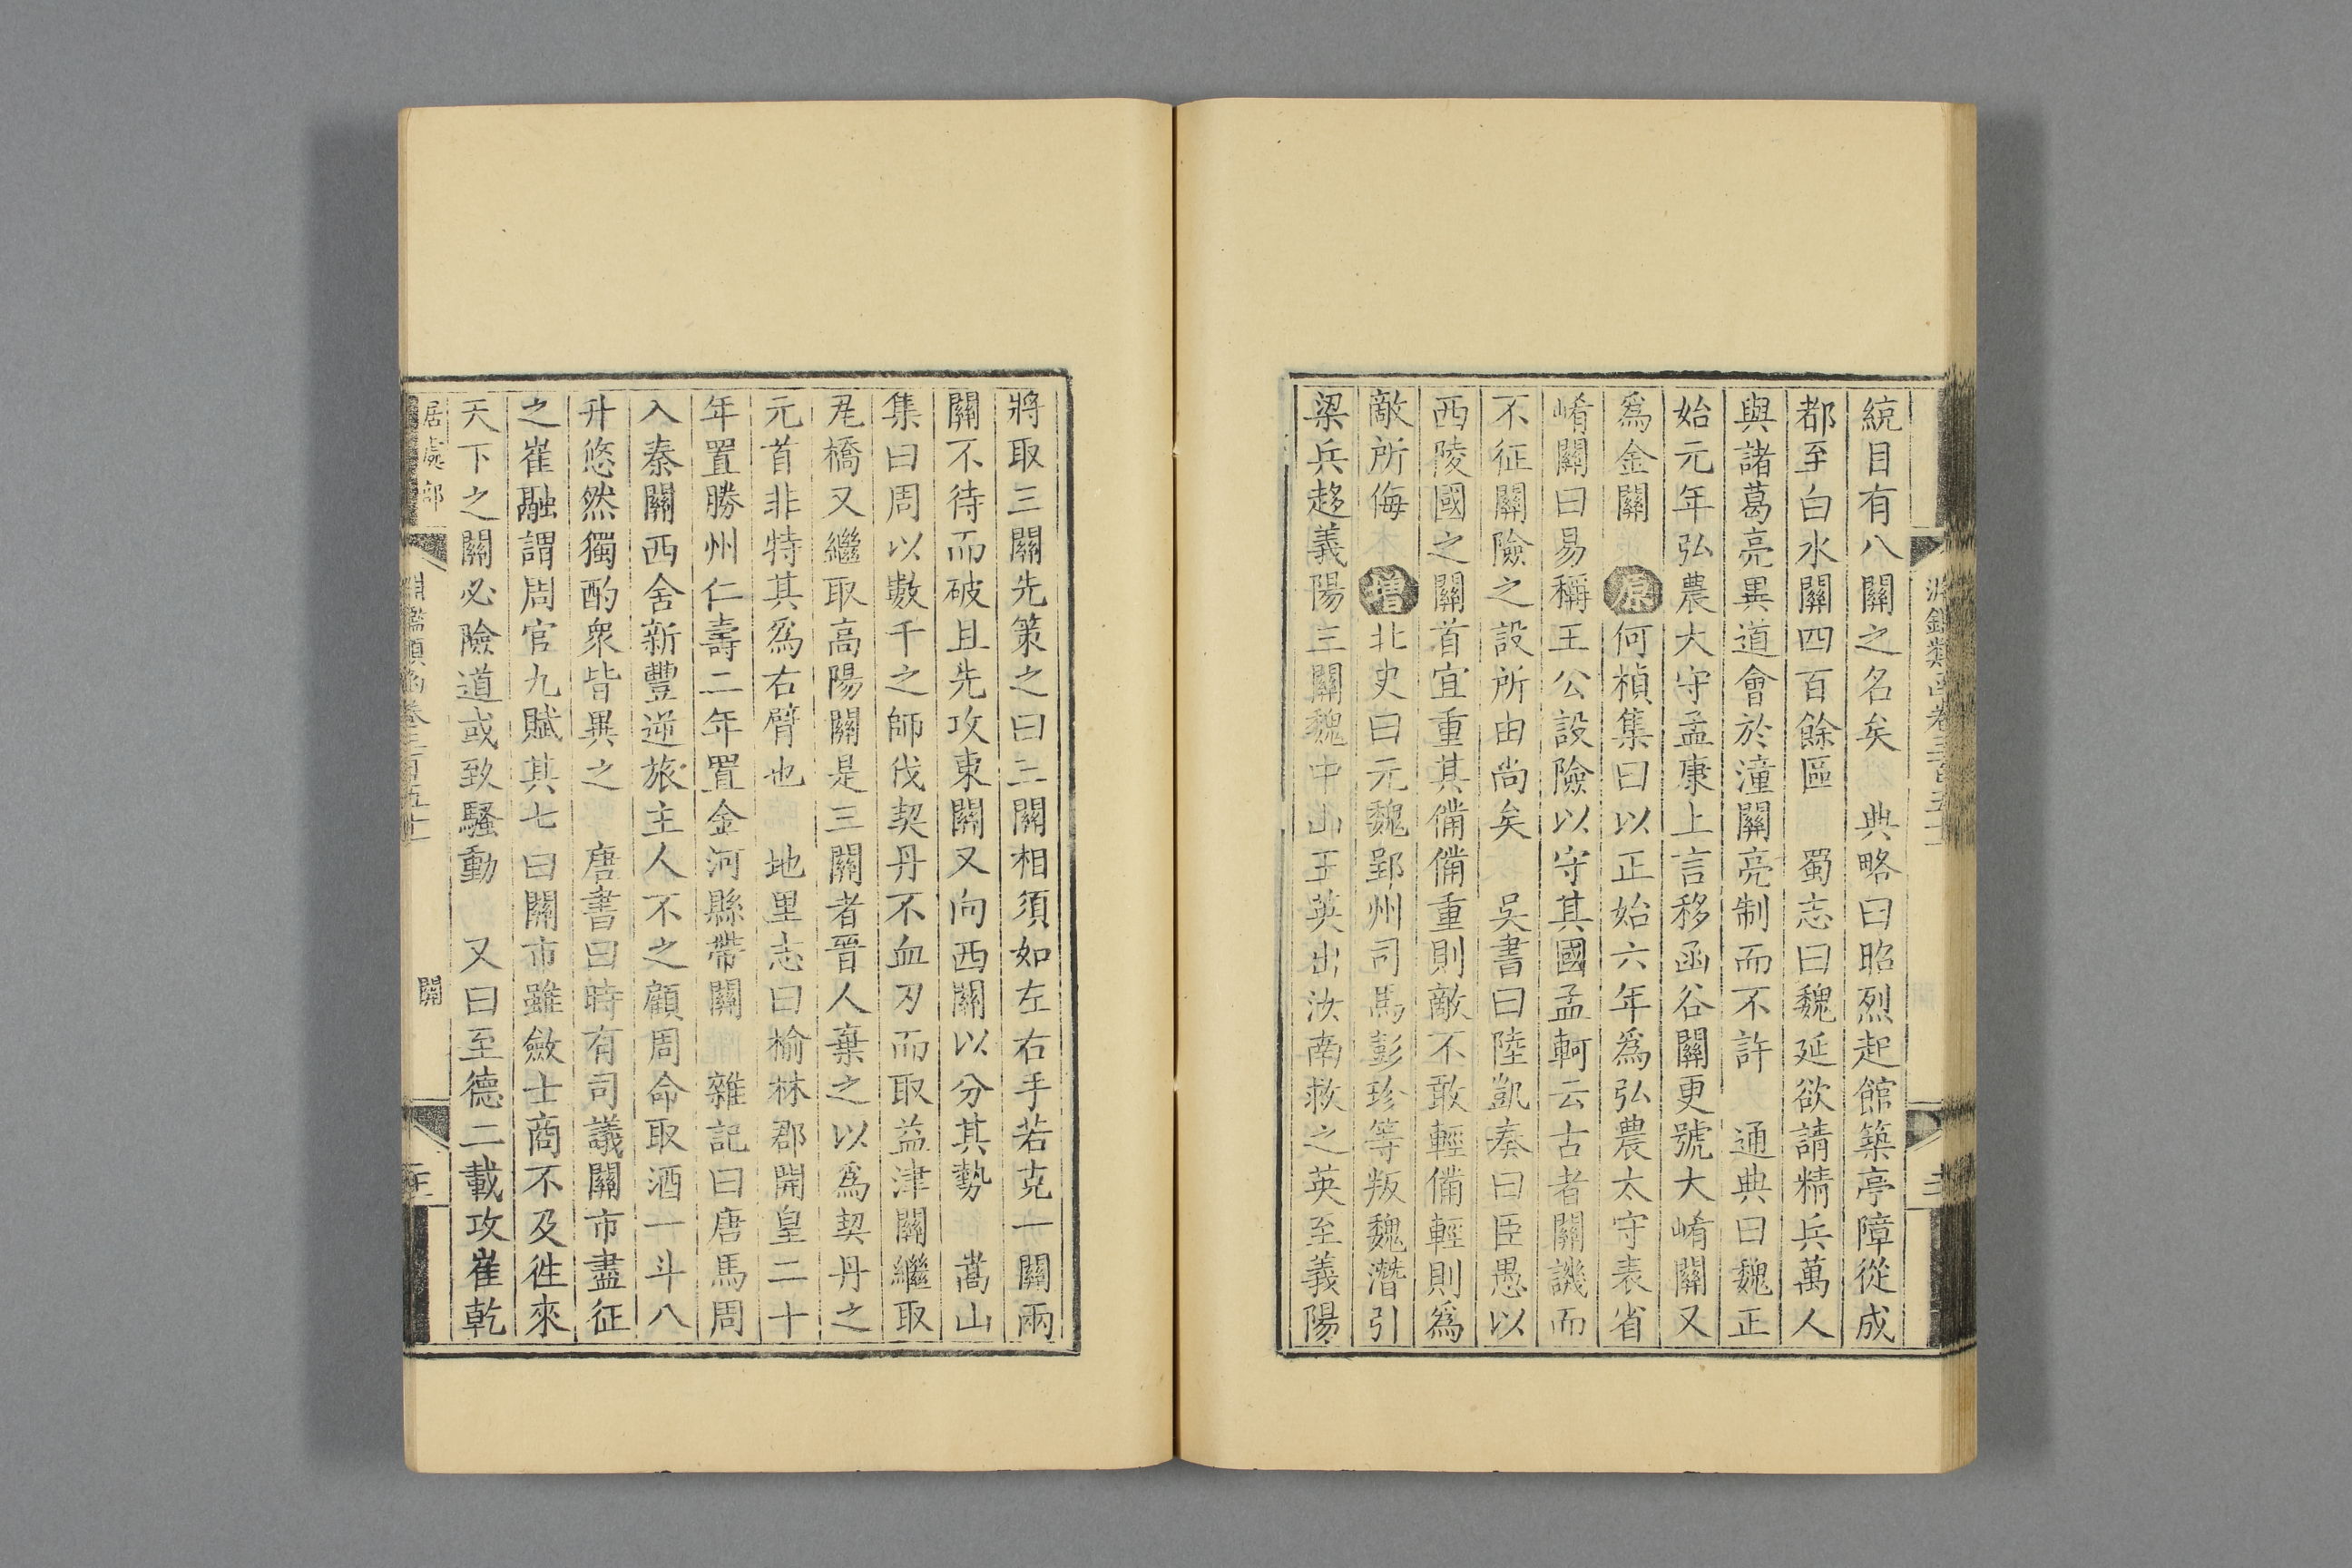 統目有八關之名矣　典略曰昭烈起館築亭障從成
都至白水關四百餘區　蜀志曰魏延欲請精兵萬人
與諸葛亮異道會於潼關亮制而不許　通典曰魏正
始元年弘農大守孟康上言移函谷關更號大崤關又
爲金關　原　何楨集曰以正始六年爲弘農太守表省
崤關曰易稱王公設險以守其國孟軻云古者關譏而
不征關險之設所由尚矣　吳書曰陸凱奏曰臣愚以
西陵國之關首宜重其備備重則敵不敢輕備輕則爲
敵所侮　增　北史曰元魏郢州司馬彭珍等叛魏潛引
梁兵趍義陽三關魏中山王英出汝南救之英至義陽
將取三關先策之曰三關相須如左右手若克一關兩
關不待而破且先攻東關又向西關以分其勢　嵩山
集曰周以數千之師伐契丹不血刃而取益津關繼取
瓦橋又繼取高陽關是三關者晉人棄之以爲契丹之
元首非特其爲右臂也　地里志曰榆林郡開皇二十
年置勝州仁壽二年置金河縣帶關　雜記曰唐馬周
入秦關西舍新豐逆旅主人不之顧周命取酒一斗八
升悠然獨酌衆皆異之　唐書曰時有司議關市盡征
之崔融謂周官九賦其七曰關市雖斂士商不及徃來
天下之關必險道或致騷動　又曰至德二載攻崔乾
居處部　淵鑑類函卷三百五十　關